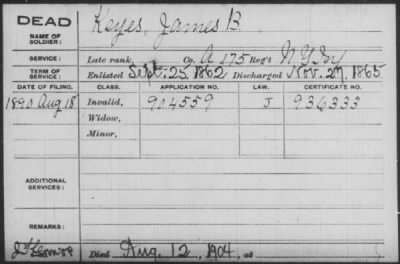 DEAD Keyes, James B.
NAME OF SOLDIER:
SERVICE: Late rank, Co. A 175 Reg't N.Y. Inf
TERM OF SERVICE: Enlisted Sept. 25, 1862 Discharged Nov. 27, 1865
DATE OF FILING. CLASS. APPLICATION NO. LAW. CERTIFICATE NO.
1890 Aug 18 Invalid, 904559 J 936333
Widow,
Minor,
ADDITIONAL SERVICES:
REMARKS:
Died Aug. 12, 1904, at